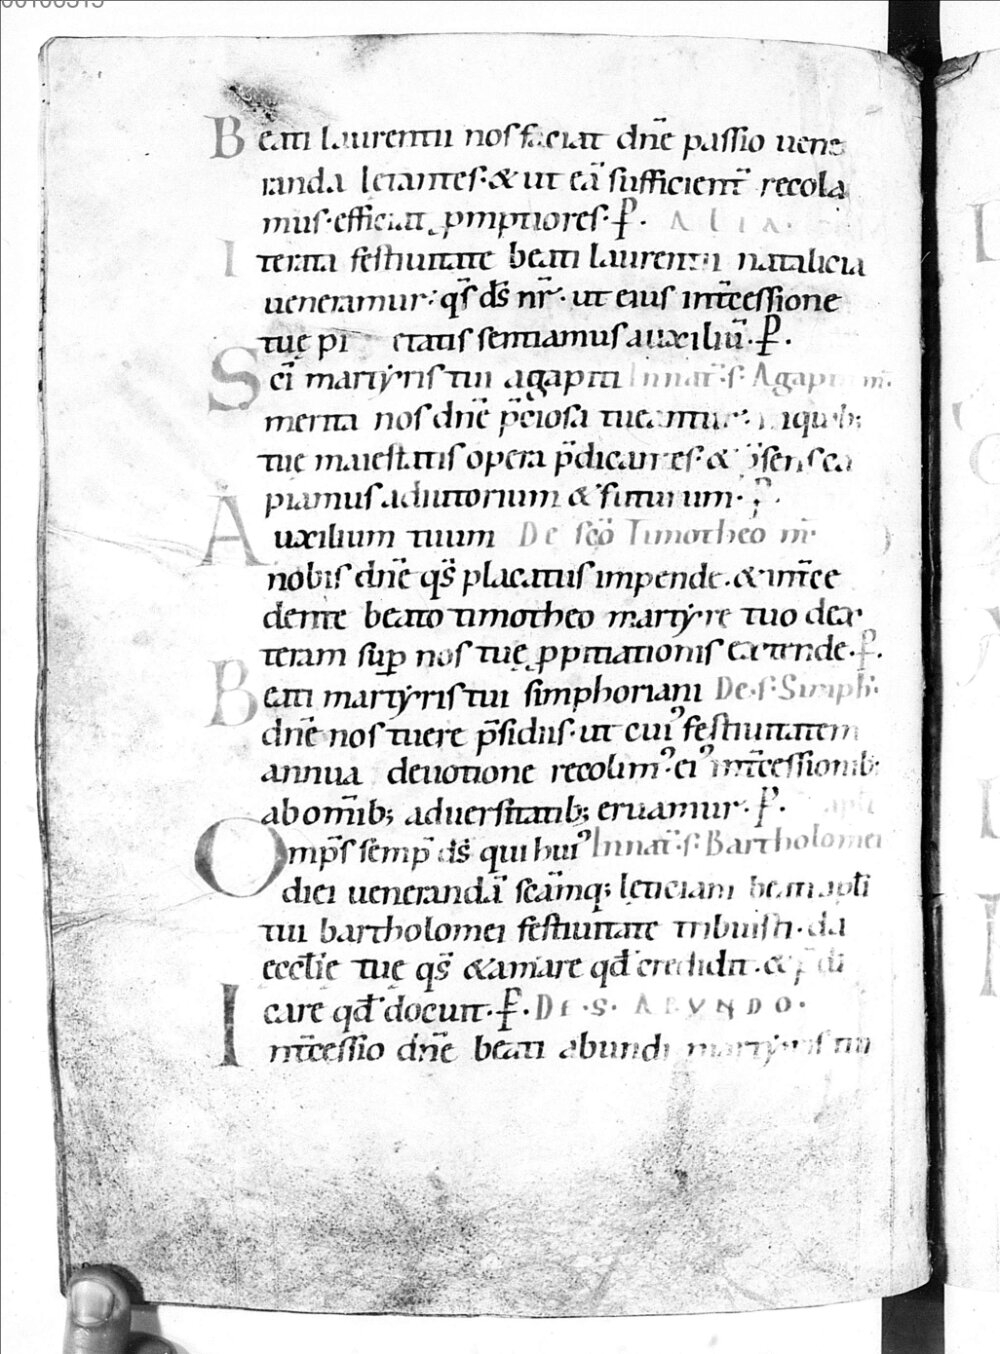 Beati laurentii nos faciat dn̄e passio uene
randa letantes·& ut eā sufficient̄ recola
mus·efficiat p̱mptiores·P̄. ALIA.
Iterata festiuitate beati laurentii natalicia
ueneramur·qs̄ ds̄ nr̄·ut eius int̄cessione
tuę pietatis sentiamus auxiliū·P̄.
Sc̄i martyris tui agapiti In nat̄·s·Agapiti m̄.
merita nos dn̄e p̄ciosa tueantur·
tuę maiestatis opera p̄dicantes·& p̄sens ca
piamus adiutorium & futurum·P̄.
Auxilium tuum De sc̄o Timotheo m̄·
nobis dn̄e qs̄ placatus impende·& int̄ce
dente beato timotheo martyre tuo dex
teram sup̱ nos tuę p̱pitiationis extende·P̄.
Beati martyris tui simphoriani De·s·Simph̄·
dn̄e nos tuere p̄sidiis·ut cuiꝰ festiuitatem
annua deuotione recolimꝰ·eiꝰ int̄cessionib;
ab om̄ib; aduersitatib; eruamur·P̄.
Omp̄s semp̱ ds̄ qui huiꝰ In nat̄·s·Bartholomei apl̄i
diei uenerandā sc̄amq; leticiam beati apl̄i
tui bartholomei festiuitate tribuisti·da
eccl̄ie tuę qs̄ & amare qđ credidit·& p̄di
care qđ docuit·P̄. DE·S·ABVNDO·
Int̄cessio dn̄e beati abundi martyris tui